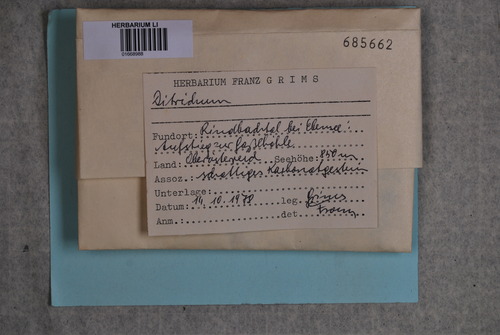 HERBARIUM LI
685662
HERBARIUM FRANZ GRIMS
Ditrichum
Fundort: Rindbachtal bei Ebensee:
Aufstieg zur Gasslhöhle
Land: Oberösterreich Seehöhe: 850 m
Assoz. schattiges Karbonatgestein
Unterlage:
Datum: 14.10.1978 leg. Grims
Anm.: det. Franz